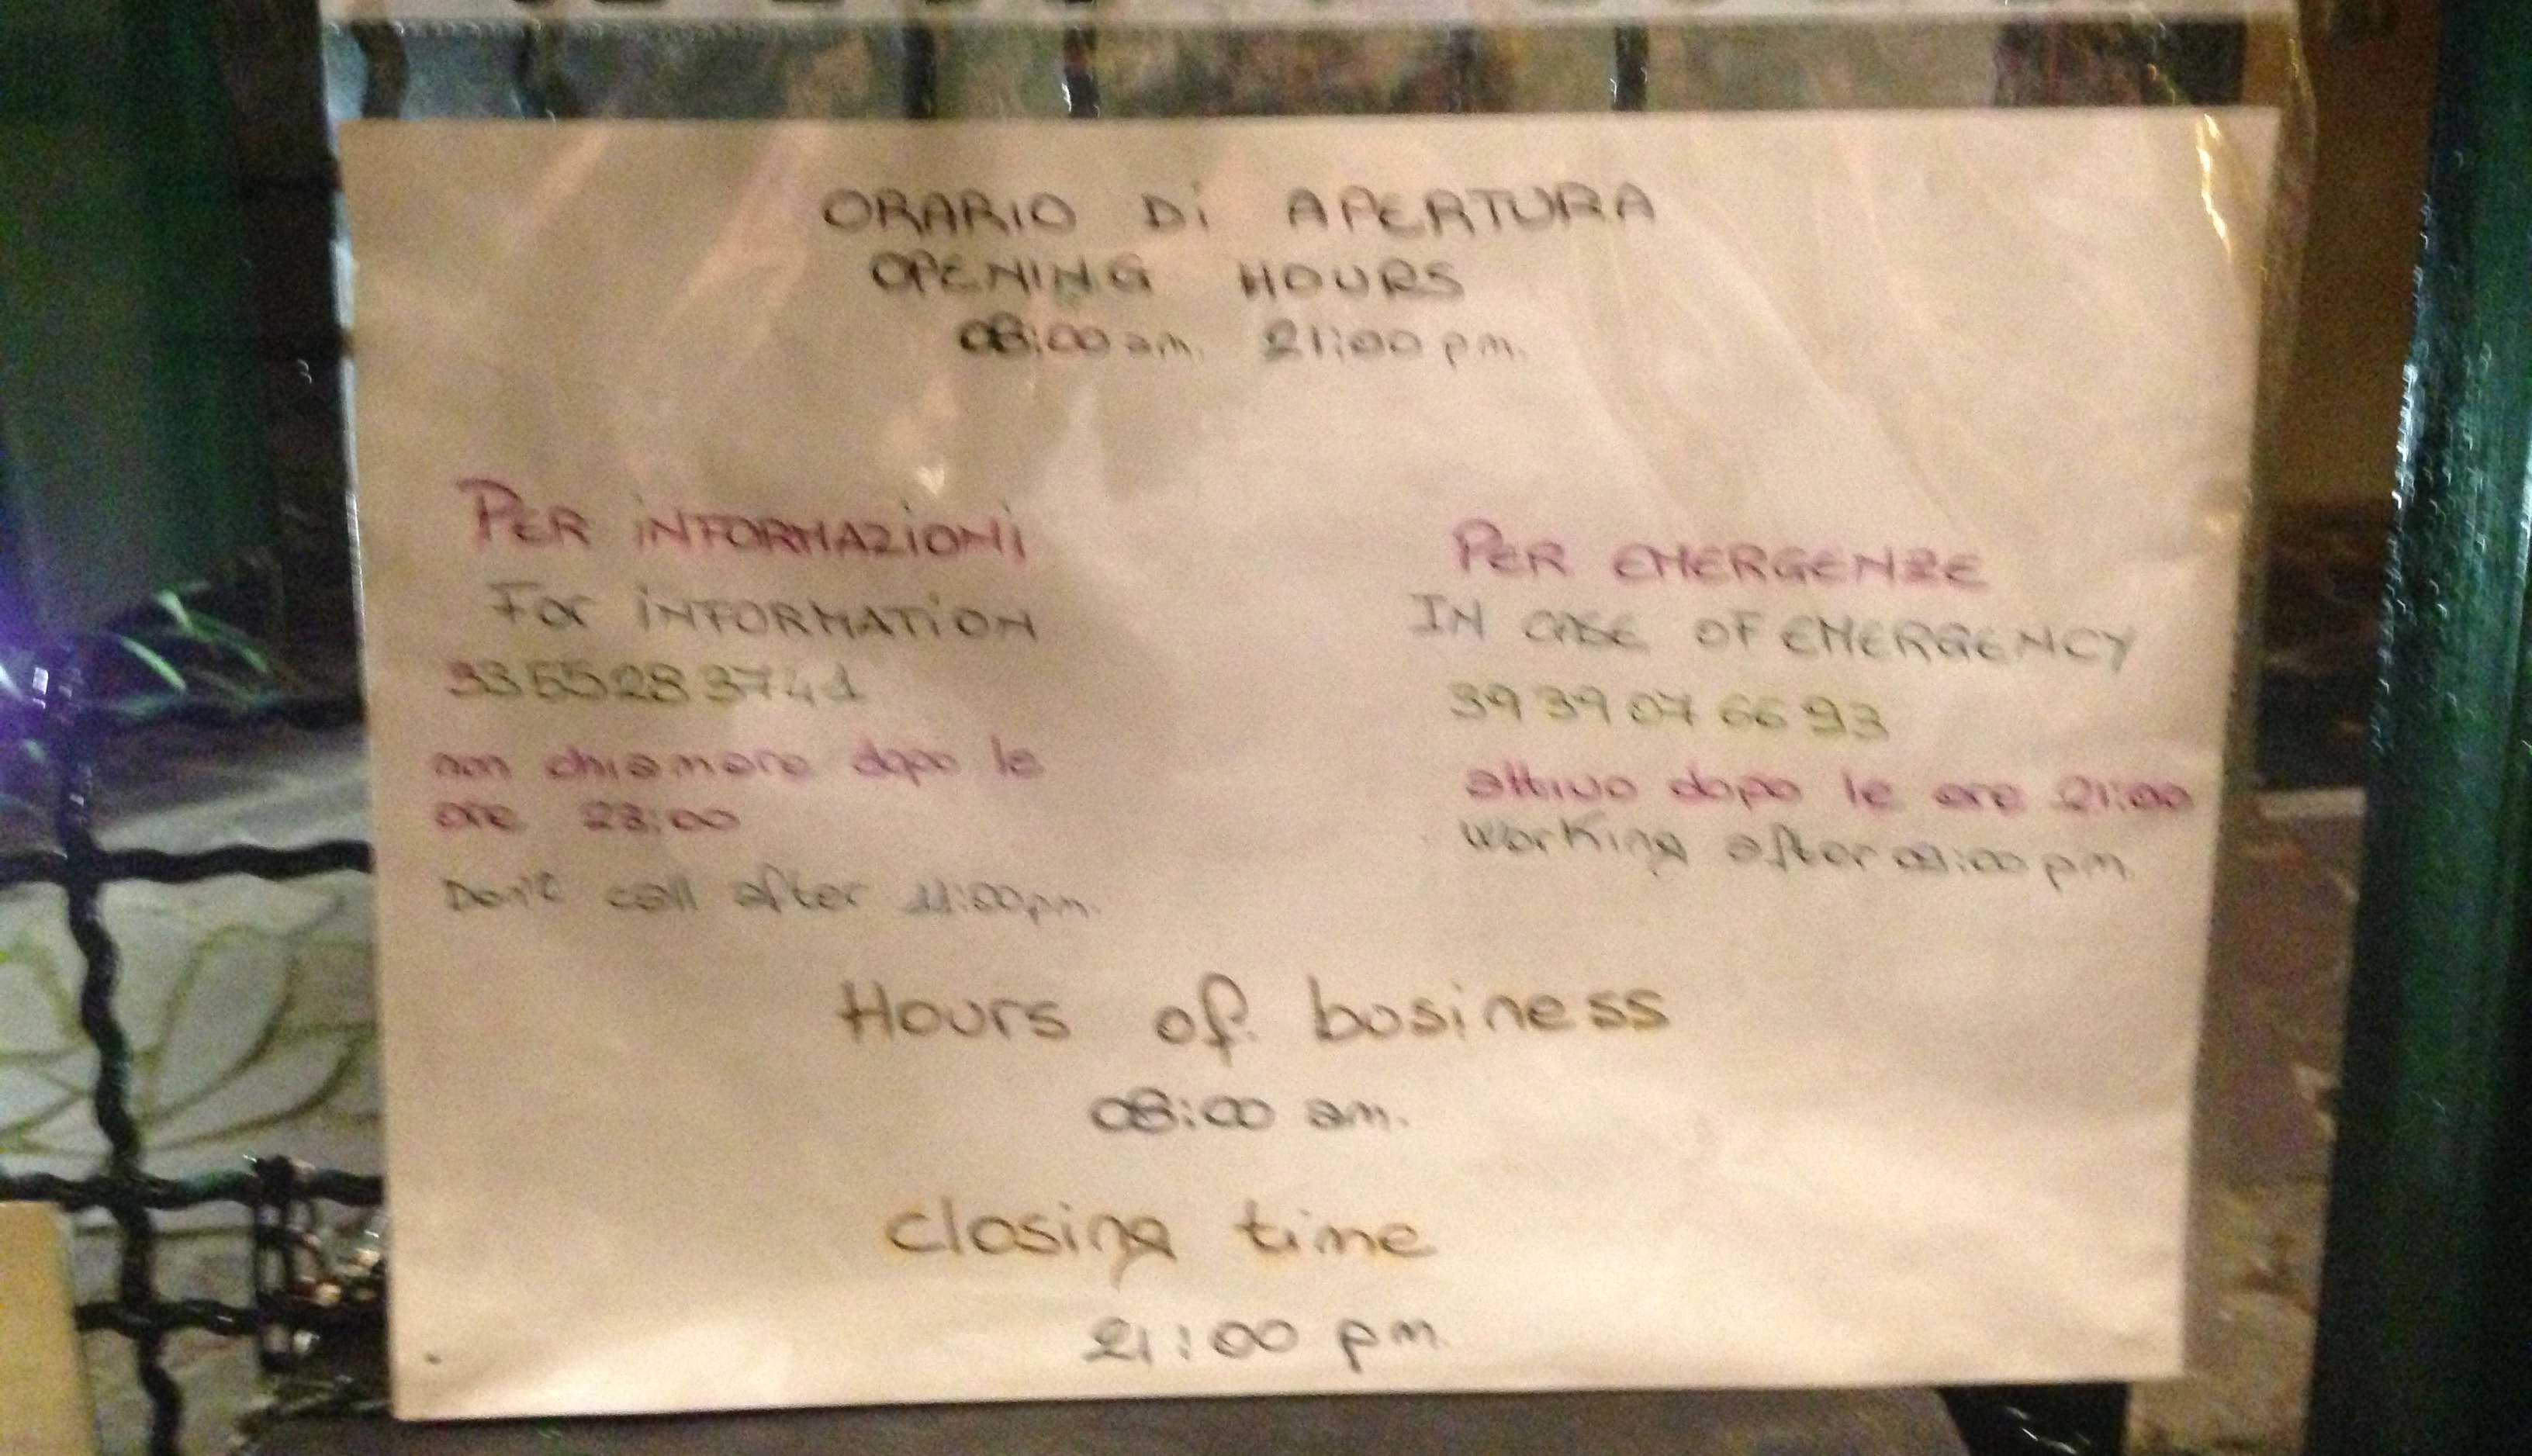 ORARIO Di APERTURA
OPENING HOURS
08:00 am. 21:00 pm.
PER iNFORMAZiONi
For iNFORMATiON
3355283741
non chiamare dopo le
ore 23:00
Don't call after 11:00pm.
PER EMERGENZE
IN CASE OF EMERGENCY
39 39 07 66 93
attivo dopo le ore 21:00
Working after 09:00 pm.
Hours of bosiness
08:00 am.
closing time
21:00 pm.